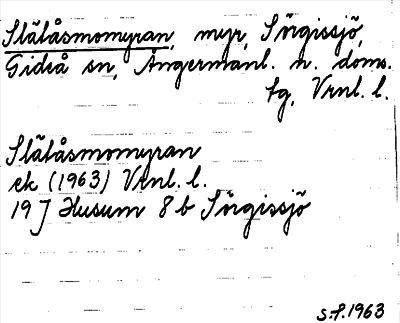 Slåtåsmomyran, myr, Sörgissjö,
Gideå sn, Ångermanl. n. doms.
tg, Vrnl. l.
Slåtåsmomyran
ek (1963) Vrnl. l.
19 J Husum 8 b Sörgissjö
S.F. 1963